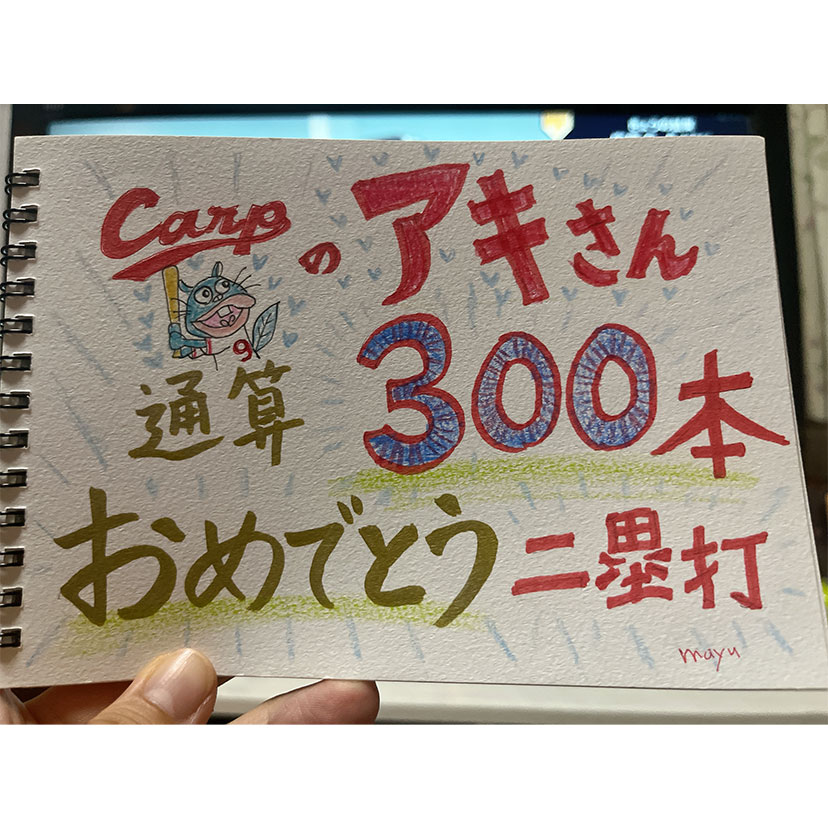 Carpのアキさん
9
通算300本
おめでとう二塁打
mayu